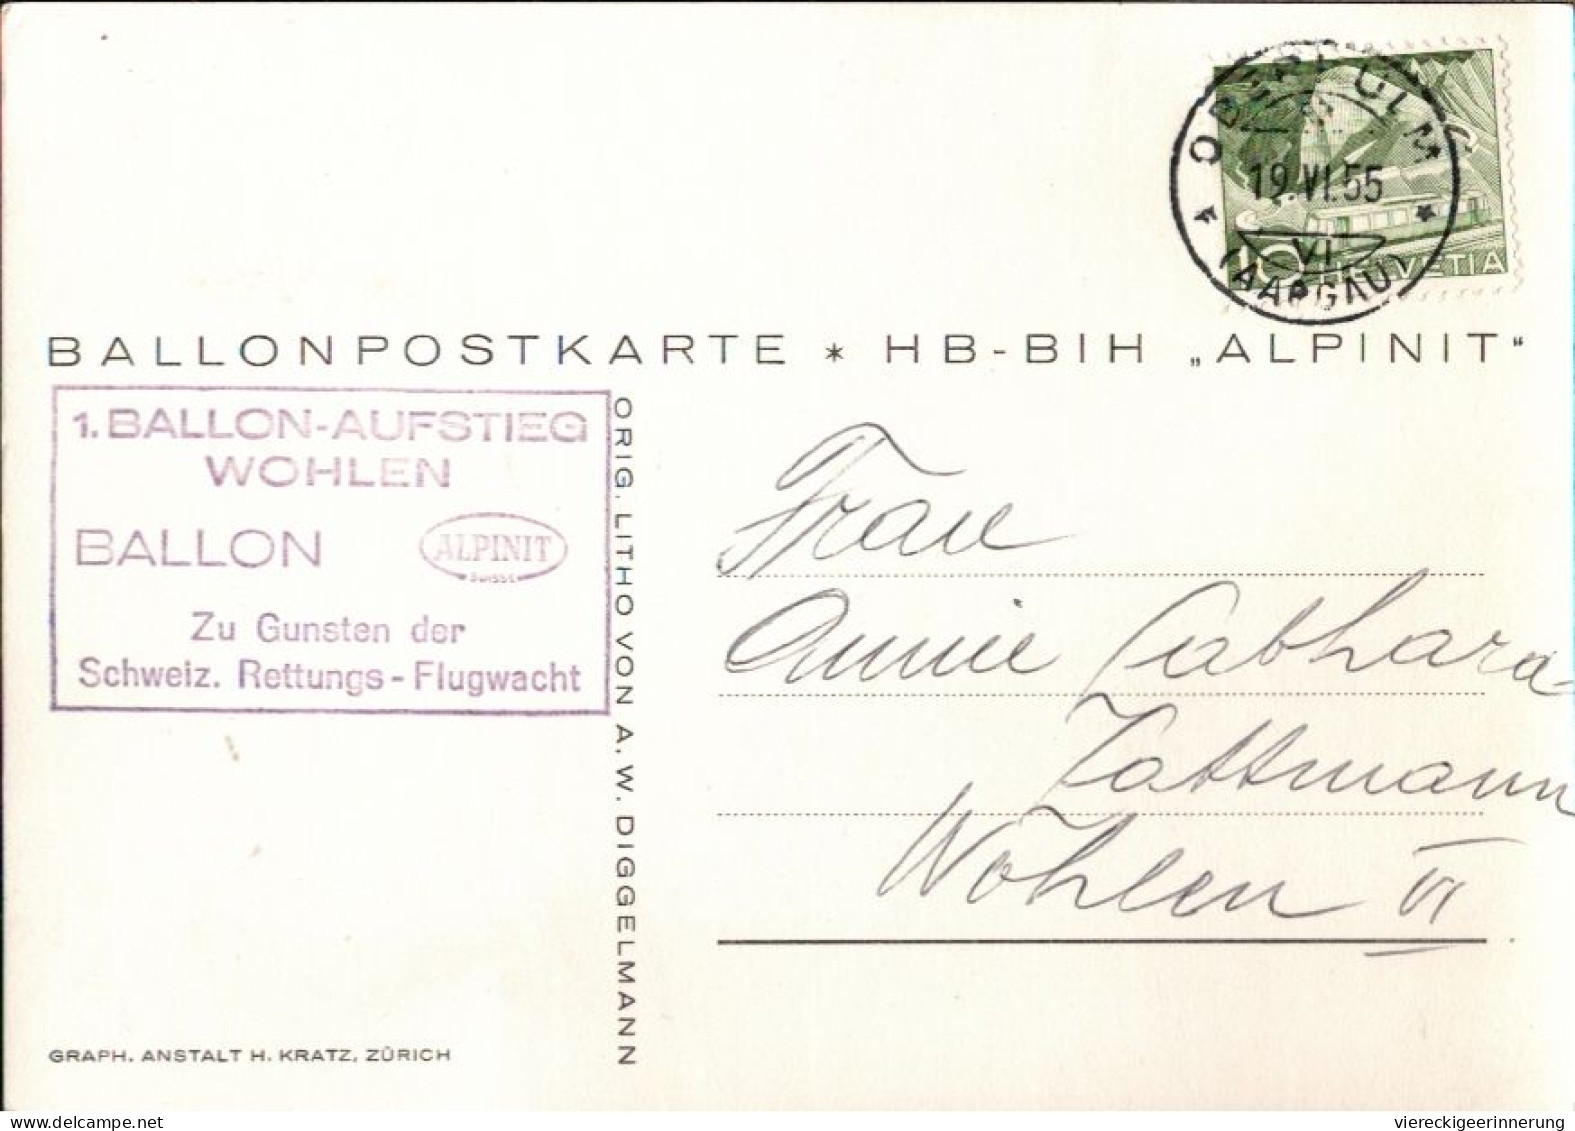 OBERKULM
19.VI.55
VI
(AARGAU)
10 HELVETIA
BALLONPOSTKARTE * HB-BIH „ALPINIT“
1. BALLON-AUFSTIEG
WOHLEN
BALLON ALPINIT
SUISSE
Zu Gunsten der
Schweiz. Rettungs-Flugwacht
ORIG. LITHO VON A. W. DIGGELMANN
Frau
Annie
Wohlen
GRAPH. ANSTALT H. KRATZ, ZÜRICH
viereckigeerinnerung